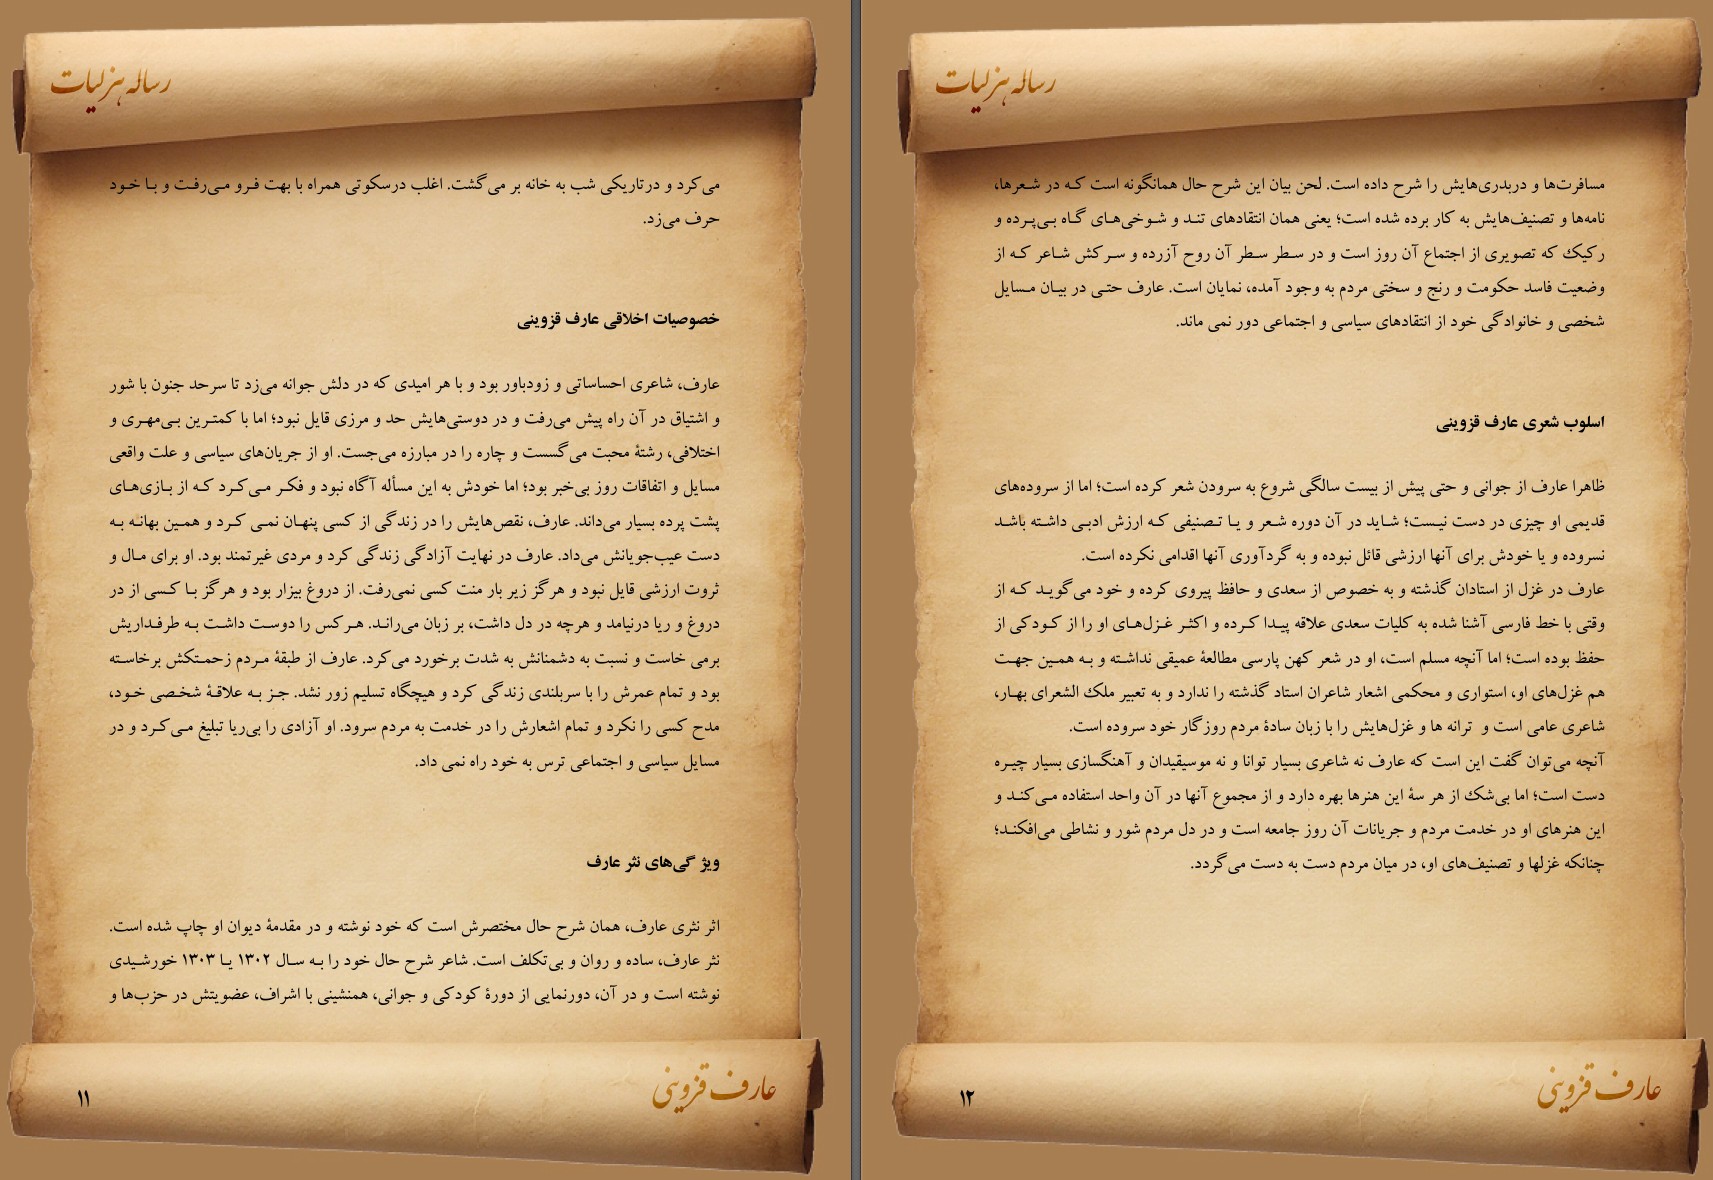 رساله هزلیات
می‌کرد و درتاریکی شب به خانه بر می‌گشت. اغلب درسکوتی همراه با بهت فـرو مـی‌رفـت و بـا خـود
حرف می‌زد.
خصوصیات اخلاقی عارف قزوینی
عارف، شاعری احساساتی و زودباور بود و با هر امیدی که در دلش جوانه می‌زد تا سرحد جنون با شور
و اشتیاق در آن راه پیش می‌رفت و در دوستی‌هایش حد و مرزی قایل نبود؛ اما با کمتـرین بـی‌مهـری و
اختلافی، رشتهٔ محبت می‌گسست و چاره را در مبارزه می‌جست. او از جریان‌های سیاسی و علت واقعی
مسایل و اتفاقات روز بی‌خبر بود؛ اما خودش به این مسأله آگاه نبود و فکـر مـی‌کـرد کـه از بـازی‌هـای
پشت پرده بسیار می‌داند. عارف، نقص‌هایش را در زندگی از کسی پنهـان نمـی کـرد و همـین بهانـه بـه
دست عیب‌جویانش می‌داد. عارف در نهایت آزادگی زندگی کرد و مردی غیرتمند بود. او برای مـال و
ثروت ارزشی قایل نبود و هرگز زیر بار منت کسی نمی‌رفت. از دروغ بیزار بود و هرگز بـا کـسی از در
دروغ و ریا درنیامد و هرچه در دل داشت، بر زبان می‌رانـد. هـرکس را دوسـت داشـت بـه طرفـداریش
برمی خاست و نسبت به دشمنانش به شدت برخورد می‌کرد. عارف از طبقهٔ مـردم زحمـتکش برخاسـته
بود و تمام عمرش را با سربلندی زندگی کرد و هیچگاه تسلیم زور نشد. جـز بـه علاقـهٔ شخـصی خـود،
مدح کسی را نکرد و تمام اشعارش را در خدمت به مردم سرود. او آزادی را بی‌ریا تبلیغ مـی‌کـرد و در
مسایل سیاسی و اجتماعی ترس به خود راه نمی داد.
ویژ گی‌های نثر عارف
اثر نثری عارف، همان شرح حال مختصرش است که خود نوشته و در مقدمهٔ دیوان او چاپ شده است.
نثر عارف، ساده و روان و بی‌تکلف است. شاعر شرح حال خود را بـه سـال ۱۳۰۲ یـا ۱۳۰۳ خورشـیدی
نوشته است و در آن، دورنمایی از دورهٔ کودکی و جوانی، همنشینی با اشراف، عضویتش در حزب‌ها و
عارف قزوینی
۱۱
رساله هزلیات
مسافرت‌ها و دربدری‌هایش را شرح داده است. لحن بیان این شرح حال همانگونه است کـه در شـعرها،
نامه‌ها و تصنیف‌هایش به کار برده شده است؛ یعنی همان انتقادهای تنـد و شـوخی‌هـای گـاه بـی‌پـرده و
رکیک که تصویری از اجتماع آن روز است و در سـطر سـطر آن روح آزرده و سـرکش شـاعر کـه از
وضعیت فاسد حکومت و رنج و سختی مردم به وجود آمده، نمایان است. عارف حتـی در بیـان مـسایل
شخصی و خانوادگی خود از انتقادهای سیاسی و اجتماعی دور نمی ماند.
اسلوب شعری عارف قزوینی
ظاهرا عارف از جوانی و حتی پیش از بیست سالگی شروع به سرودن شعر کرده است؛ اما از سروده‌های
قدیمی او چیزی در دست نیـست؛ شـاید در آن دوره شـعر و یـا تـصنیفی کـه ارزش ادبـی داشـته باشـد
نسروده و یا خودش برای آنها ارزشی قائل نبوده و به گردآوری آنها اقدامی نکرده است.
عارف در غزل از استادان گذشته و به خصوص از سعدی و حافظ پیروی کرده و خود می‌گویـد کـه از
وقتی با خط فارسی آشنا شده به کلیات سعدی علاقه پیـدا کـرده و اکثـر غـزل‌هـای او را از کـودکی از
حفظ بوده است؛ اما آنچه مسلم است، او در شعر کهن پارسی مطالعهٔ عمیقی نداشـته و بـه همـین جهـت
هم غزل‌های او، استواری و محکمی اشعار شاعران استاد گذشته را ندارد و به تعبیر ملک الشعرای بهـار،
شاعری عامی است و ترانه ها و غزل‌هایش را با زبان سادهٔ مردم روزگار خود سروده است.
آنچه می‌توان گفت این است که عارف نه شاعری بسیار توانا و نه موسیقیدان و آهنگسازی بسیار چیـره
دست است؛ اما بی‌شک از هر سهٔ این هنرها بهره دارد و از مجموع آنها در آن واحد استفاده مـی‌کنـد و
این هنرهای او در خدمت مردم و جریانات آن روز جامعه است و در دل مردم شور و نشاطی می‌افکنـد؛
چنانکه غزلها و تصنیف‌های او، در میان مردم دست به دست می‌گردد.
عارف قزوینی
۱۲